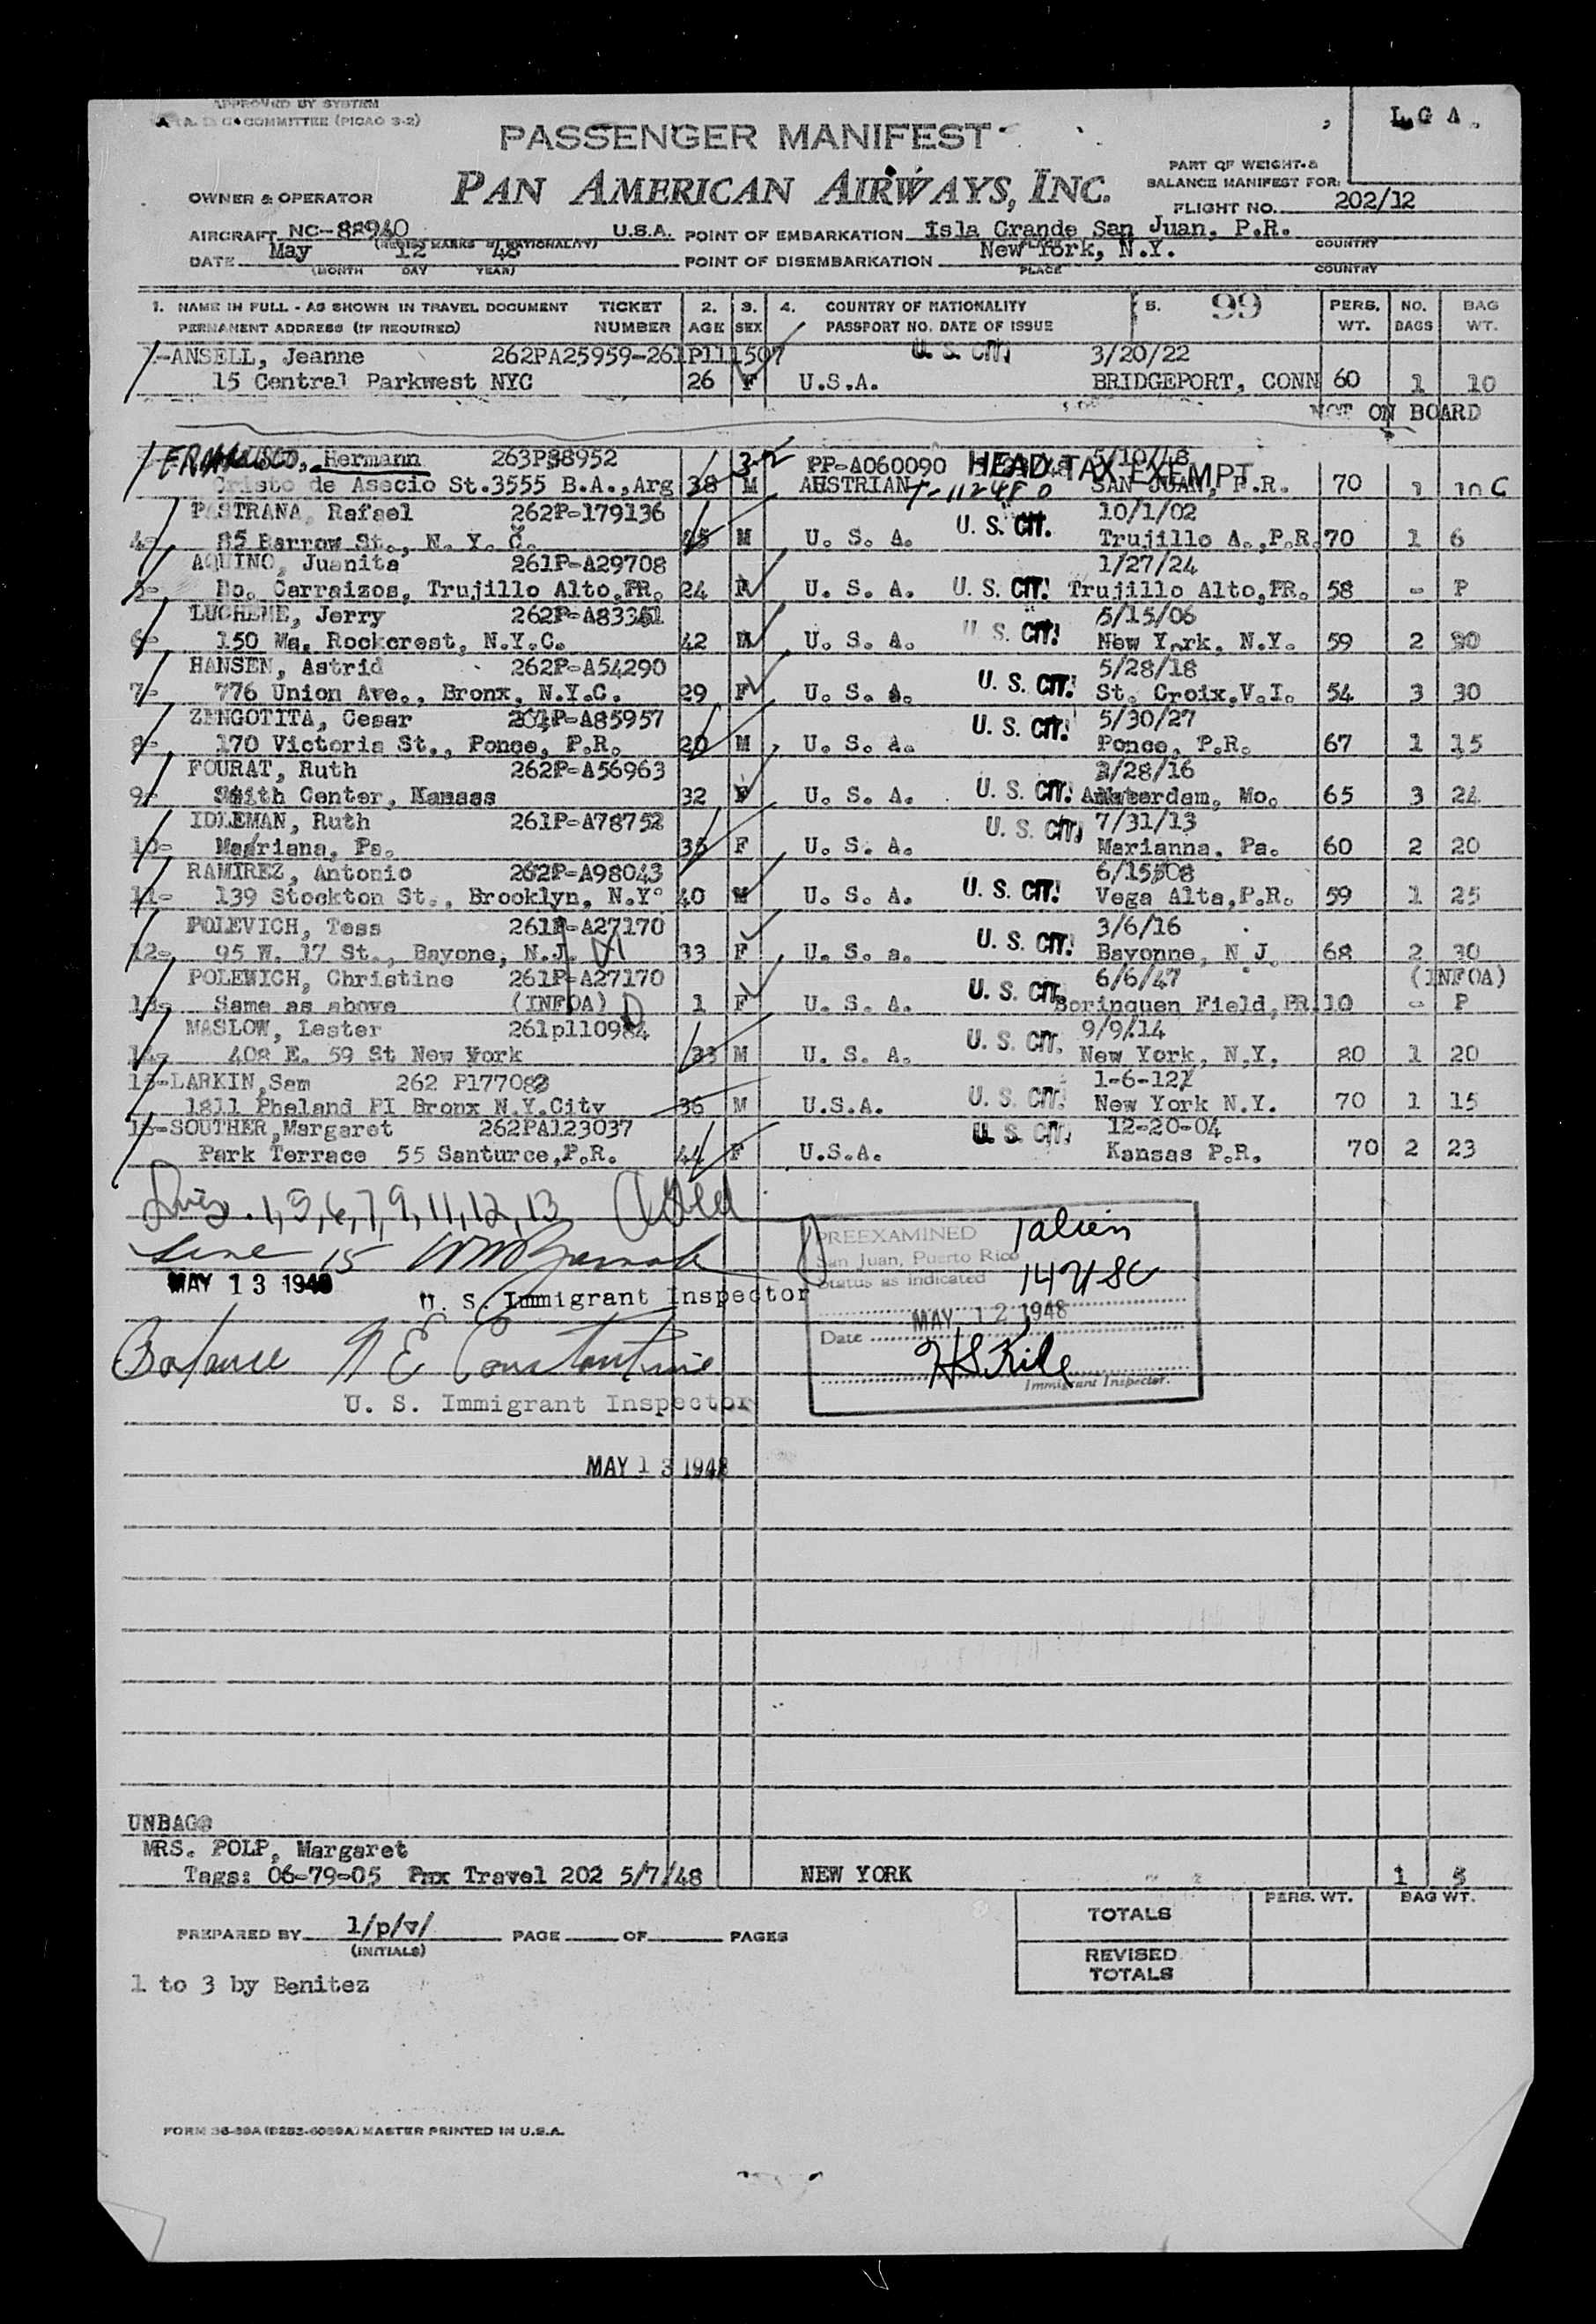 APPROVED BY SYSTEM
COMMITTEE (PICAO S-2)
L G A.
PASSENGER MANIFEST
PAN AMERICAN AIRWAYS, INC.
PART OF WEIGHT &
BALANCE MANIFEST FOR:
OWNER & OPERATOR
FLIGHT NO. 202/12
AIRCRAFT NC-88940 U.S.A. POINT OF EMBARKATION Isla Grande San Juan, P.R.
PLACE COUNTRY
DATE May 12 48 POINT OF DISEMBARKATION New York, N.Y.
(MONTH DAY YEAR) PLACE COUNTRY
1. NAME IN FULL - AS SHOWN IN TRAVEL DOCUMENT TICKET 2. 3. 4. COUNTRY OF NATIONALITY 5. 99 PERS. NO. BAG
PERMANENT ADDRESS (IF REQUIRED) NUMBER AGE SEX PASSPORT NO. DATE OF ISSUE WT. BAGS WT.
ANSELL, Jeanne 262PA25959-261P111507 U. S. CIT. 3/20/22
15 Central Parkwest NYC 26 F U.S.A. BRIDGEPORT, CONN 60 1 10
NOT ON BOARD
Hermann 263P38952 3-2 PP-A060090 HEAD TAX EXEMPT 5/10/48
Cristo de Asecio St.3555 B.A.,Arg 38 M AUSTRIAN SAN JUAN, P.R. 70 1 10 C
PASTRANA, Rafael 262P-179136 U. S. CIT. 10/1/02
4- 85 Barrow St., N. Y. C. 45 M U. S. A. Trujillo A.,P.R. 70 1 6
AQUINO, Juanita 261P-A29708 1/27/24
5- Bo. Carraizos, Trujillo Alto,PR. 24 F U. S. A. U. S. CIT. Trujillo Alto,PR. 58 - P
LUCHEME, Jerry 262P-A83351 5/15/06
6- 150 Ma. Rockcrest, N.Y.C. 42 M U. S. A. U. S. CIT. New York, N.Y. 59 2 30
HANSEN, Astrid 262P-A54290 5/28/18
7- 776 Union Ave., Bronx, N.Y.C. 29 F U. S. a. U. S. CIT. St. Croix,V.I. 54 3 30
ZENGOTITA, Cesar 261P-A85957 U. S. CIT. 5/30/27
8- 170 Victoria St., Ponce, P.R. 20 M U. S. A. Ponce, P.R. 67 1 15
FOURAT, Ruth 262P-A56963 3/28/16
9- Smith Center, Kansas 32 F U. S. A. U. S. CIT. Amsterdam, Mo. 65 3 24
IDLEMAN, Ruth 261P-A78752 U. S. CIT. 7/31/13
10- Mariana, Pa. 35 F U. S. A. Marianna, Pa. 60 2 20
RAMIREZ, Antonio 262P-A98043 6/15/08
11- 139 Stockton St., Brooklyn, N.Y. 40 M U. S. A. U. S. CIT. Vega Alta,P.R. 59 1 25
POLEVICH, Tess 261P-A27170 3/6/16
12- 95 W. 17 St., Bayone, N.J. 33 F U. S. a. U. S. CIT. Bayonne, N J. 68 2 30
POLEWICH, Christine 261P-A27170 6/6/47 (INFOA)
13- Same as above (INFOA) 1 F U. S. A. U. S. CIT. Borinquen Field,PR. 10 - P
MASLOW, Lester 261p110984 9/9/14
14- 408 E. 59 St New York 33 M U. S. A. U. S. CIT. New York, N.Y. 80 1 20
15-LARKIN,Sam 262 P177082 1-6-12
1811 Pheland Pl Bronx N.Y.City 36 M U.S.A. U. S. CIT. New York N.Y. 70 1 15
16-SOUTHER,Margaret 262PA123037 12-20-04
Park Terrace 55 Santurce,P.R. 44 F U.S.A. U. S. CIT. Kansas P.R. 70 2 23
1, 5, 6, 7, 9, 11, 12, 13
Line 15
MAY 13 1948
U. S. Immigrant Inspector
PREEXAMINED 1 alien
San Juan, Puerto Rico
Status as indicated 14 USC
MAY 12 1948
Date
H S Kile
Immigrant Inspector.
Balance N E Constantine
U. S. Immigrant Inspector
MAY 13 1948
UNBAG
MRS. POLP, Margaret
Tags: 06-79-05 Pax Travel 202 5/7/48 NEW YORK 1 5
PERS. WT. BAG WT.
TOTALS
PREPARED BY 1/p/v/ PAGE OF PAGES
(INITIALS)
REVISED
TOTALS
1 to 3 by Benitez
MASTER PRINTED IN U.S.A.